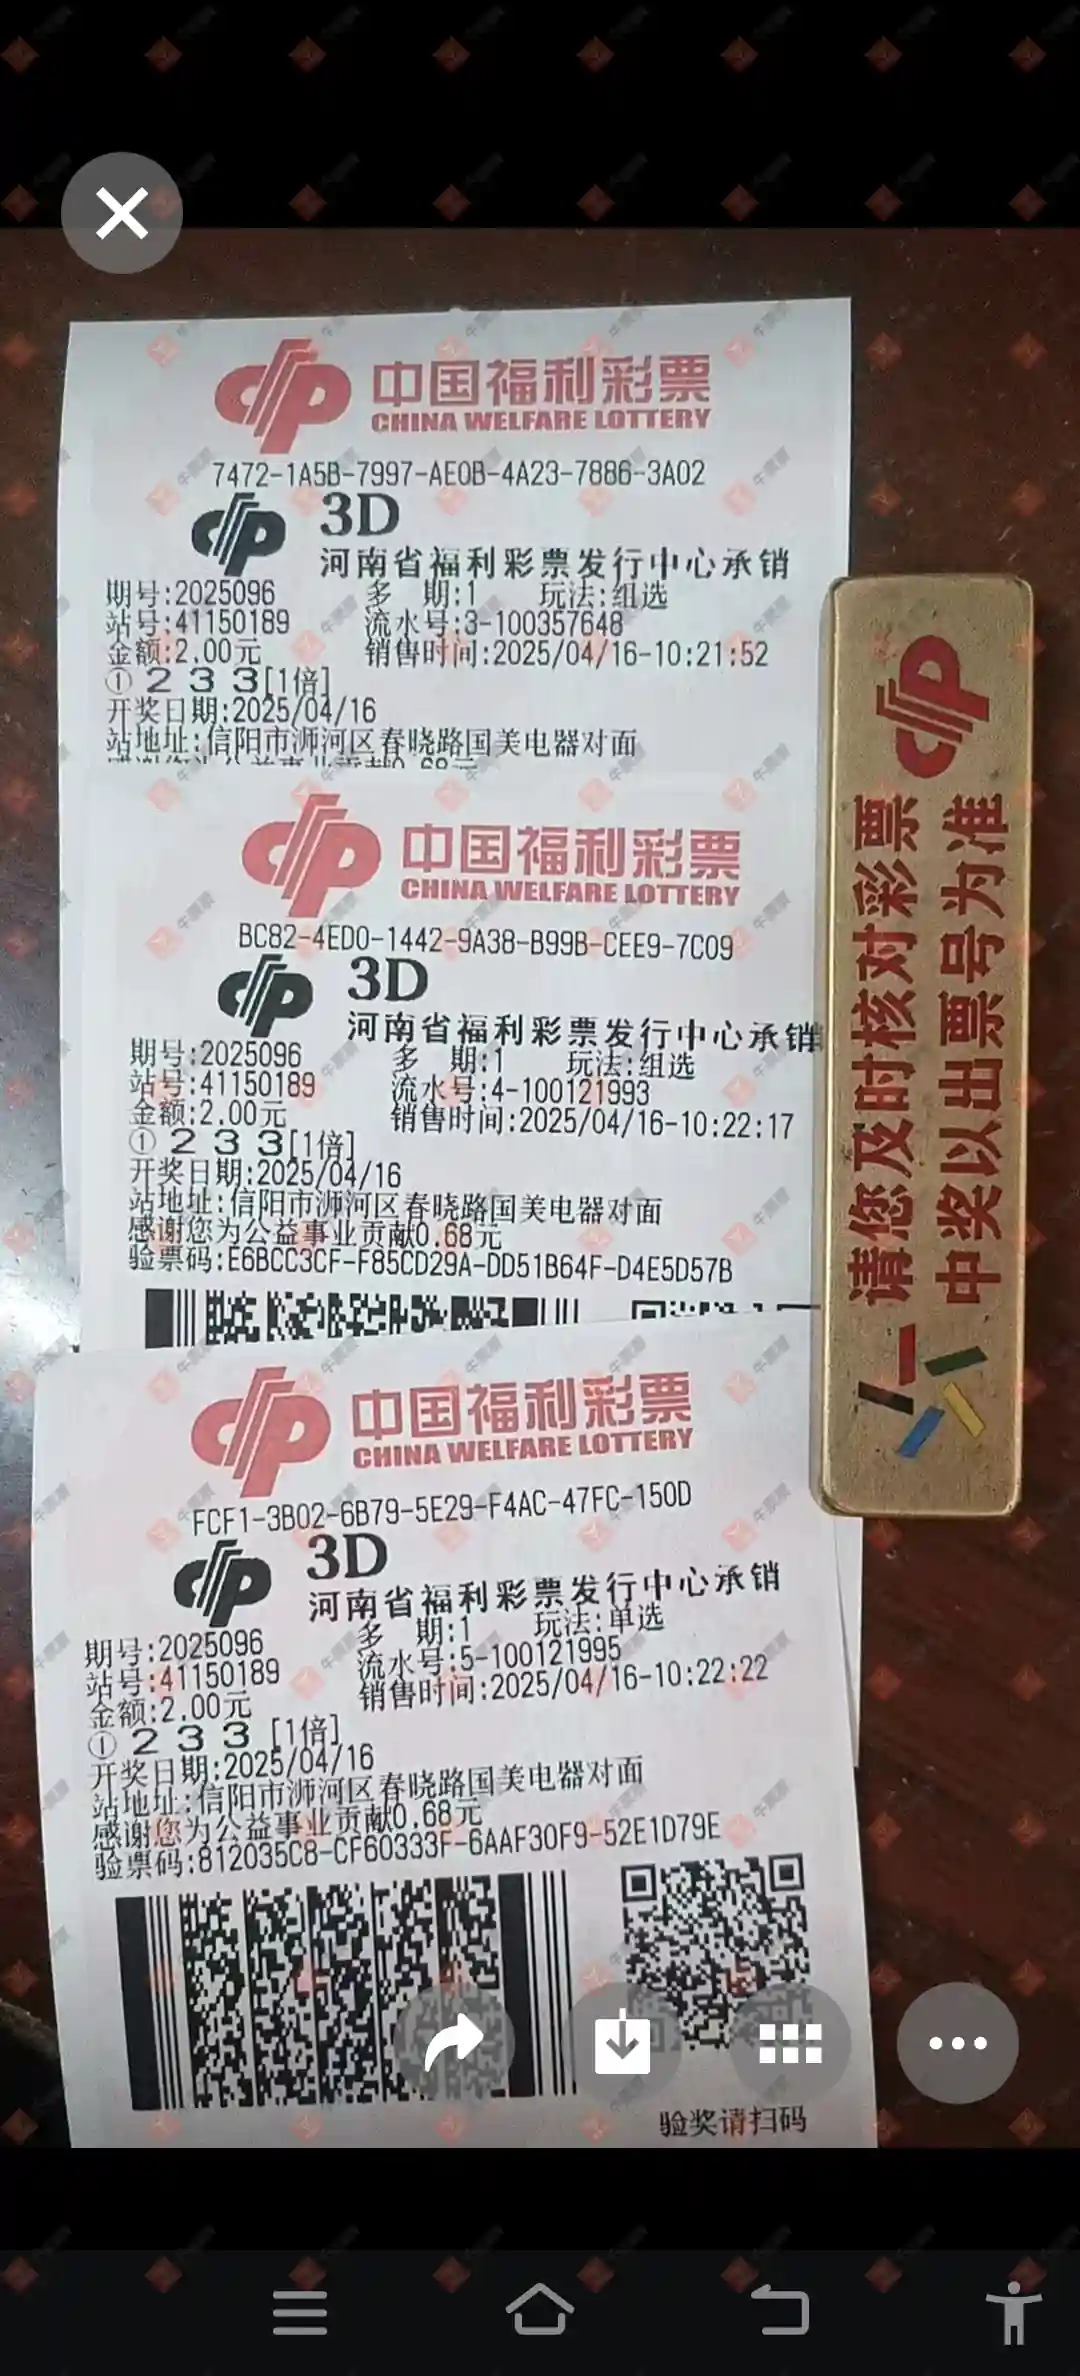 中国福利彩票
CHINA WELFARE LOTTERY
7472-1A5B-7997-AE0B-4A23-7886-3A02
3D
河南省福利彩票发行中心承销
期号:2025096 多 期:1 玩法:组选
站号:41150189 流水号:3-100357648
金额:2.00元 销售时间:2025/04/16-10:21:52
① 2 3 3[1倍]
开奖日期:2025/04/16
站地址:信阳市浉河区春晓路国美电器对面
中国福利彩票
CHINA WELFARE LOTTERY
BC82-4ED0-1442-9A38-B99B-CEE9-7C09
3D
河南省福利彩票发行中心承销
期号:2025096 多 期:1 玩法:组选
站号:41150189 流水号:4-100121993
金额:2.00元 销售时间:2025/04/16-10:22:17
① 2 3 3[1倍]
开奖日期:2025/04/16
站地址:信阳市浉河区春晓路国美电器对面
感谢您为公益事业贡献0.68元
验票码:E6BCC3CF-F85CD29A-DD51B64F-D4E5D57B
中国福利彩票
CHINA WELFARE LOTTERY
FCF1-3B02-6B79-5E29-F4AC-47FC-150D
3D
河南省福利彩票发行中心承销
期号:2025096 多 期:1 玩法:单选
站号:41150189 流水号:5-100121995
金额:2.00元 销售时间:2025/04/16-10:22:22
① 2 3 3 [1倍]
开奖日期:2025/04/16
站地址:信阳市浉河区春晓路国美电器对面
感谢您为公益事业贡献0.68元
验票码:812035C8-CF60333F-6AAF30F9-52E1D79E
验奖请扫码
请您及时核对彩票
中奖以出票号为准